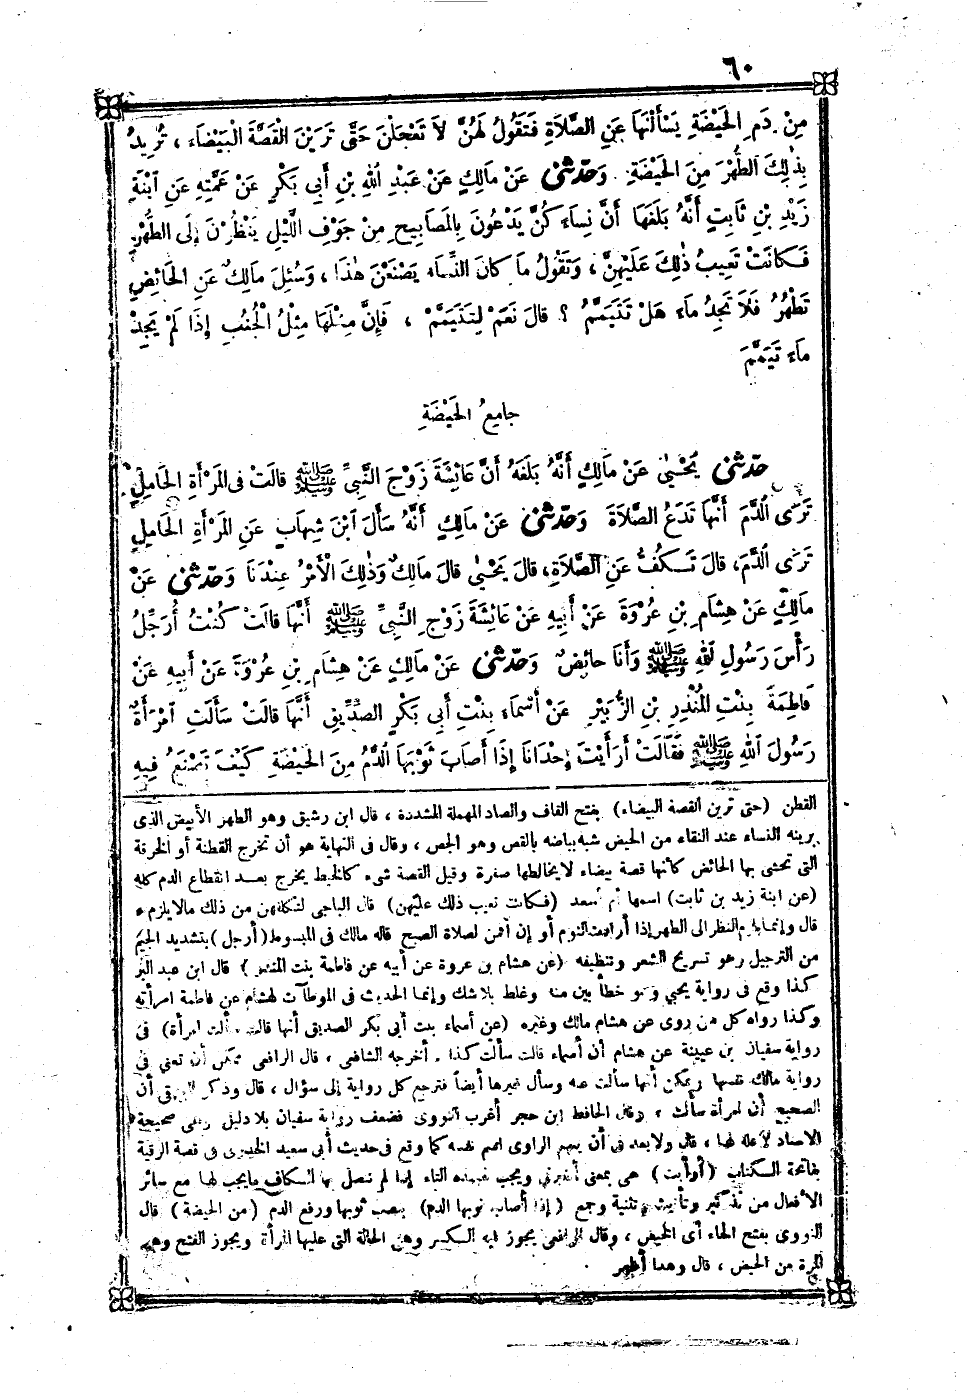 ٦٠
مِنْ دَمِ الْحَيْضَةِ يَسْأَلْنَهَا عَنِ الصَّلاَةِ فَتَقُولُ لَهُنَّ لاَ تَعْجَلْنَ حَتَّى تَرَيْنَ الْقَصَّةَ الْبَيْضَاءَ ، تُرِيدُ
بِذٰلِكَ الطُّهْرَ مِنَ الْحَيْضَةِ . وَحَدَّثَنِي عَنْ مَالِكٍ عَنْ عَبْدِ اللهِ بْنِ أَبِي بَكْرٍ عَنْ عَمَّتِهِ عَنِ ابْنَةِ
زَيْدِ بْنِ ثَابِتٍ أَنَّهُ بَلَغَهَا أَنَّ نِسَاءَ كُنَّ يَدْعُونَ بِالْمَصَابِيحِ مِنْ جَوْفِ اللَّيْلِ يَنْظُرْنَ إِلَى الطُّهْرِ
فَكَانَتْ تَعِيبُ ذٰلِكَ عَلَيْهِنَّ ، وَتَقُولُ مَا كَانَ النِّسَاءُ يَصْنَعْنَ هٰذَا ، وَسُئِلَ مَالِكٌ عَنِ الْحَائِضِ
تَطْهُرُ فَلاَ تَجِدُ مَاءً هَلْ تَتَيَمَّمُ ؟ قَالَ نَعَمْ لِتَتَيَمَّمْ ، فَإِنَّ مِثْلَهَا مِثْلُ الْجُنُبِ إِذَا لَمْ يَجِدْ
مَاءً تَيَمَّمَ
جَامِعُ الْحَيْضَةِ
حَدَّثَنِي يَحْيَى عَنْ مَالِكٍ أَنَّهُ بَلَغَهُ أَنَّ عَائِشَةَ زَوْجَ النَّبِيِّ ﷺ قَالَتْ فِي الْمَرْأَةِ الْحَامِلِ
تَرَى الدَّمَ أَنَّهَا تَدَعُ الصَّلاَةَ وَحَدَّثَنِي عَنْ مَالِكٍ أَنَّهُ سَأَلَ ابْنَ شِهَابٍ عَنِ الْمَرْأَةِ الْحَامِلِ
تَرَى الدَّمَ، قَالَ تَكُفُّ عَنِ الصَّلاَةِ، قَالَ يَحْيَى قَالَ مَالِكٌ وَذٰلِكَ الْأَمْرُ عِنْدَنَا وَحَدَّثَنِي عَنْ
مَالِكٍ عَنْ هِشَامِ بْنِ عُرْوَةَ عَنْ أَبِيهِ عَنْ عَائِشَةَ زَوْجِ النَّبِيِّ ﷺ أَنَّهَا قَالَتْ كُنْتُ أُرَجِّلُ
رَأْسَ رَسُولِ اللهِ ﷺ وَأَنَا حَائِضٌ وَحَدَّثَنِي عَنْ مَالِكٍ عَنْ هِشَامِ بْنِ عُرْوَةَ عَنْ أَبِيهِ عَنْ
فَاطِمَةَ بِنْتِ الْمُنْذِرِ بْنِ الزُّبَيْرِ عَنْ أَسْمَاءَ بِنْتِ أَبِي بَكْرٍ الصِّدِّيقِ أَنَّهَا قَالَتْ سَأَلَتِ امْرَأَةٌ
رَسُولَ اللهِ ﷺ فَقَالَتْ أَرَأَيْتَ إِحْدَانَا إِذَا أَصَابَ ثَوْبَهَا الدَّمُ مِنَ الْحَيْضَةِ كَيْفَ تَصْنَعُ فِيهِ
القطن (حتى ترين القصة البيضاء) بفتح القاف والصاد المهملة المشددة ، قال ابن رشيق وهو الطهر الأبيض الذى
يرينه النساء عند النقاء من الحيض شبه بياضه بالقص وهو الجص ، وقال فى النهاية هو أن تخرج القطنة أو الخرقة
التى تحشى بها الحائض كأنها قصة بيضاء لا يخالطها صفرة وقيل القصة شىء كالخيط يخرج بعد انقطاع الدم كله
(عن ابنة زيد بن ثابت) اسمها أم سعد (فكانت تعيب ذلك عليهن) قال الباجى لتكلفهن من ذلك مالا يلزم
قال وإنما يلزم النظر الى الطهر إذا أرادت النوم أو إن أقمن لصلاة الصبح قاله مالك فى المبسوط (أرجل) بتشديد الجيم
من الترجيل وهو تسريح الشعر وتنظيفه (عن هشام بن عروة عن أبيه عن فاطمة بنت المنذر) قال ابن عبد البر
كذا وقع فى رواية يحيى وهو خطأ بين منه وغلط بلا شك وإنما الحديث فى الموطآت لهشام عن فاطمة امرأته
وكذا رواه كل من روى عن هشام مالك وغيره (عن أسماء بنت أبى بكر الصديق أنها قالت سألت امرأة) فى
رواية سفيان بن عيينة عن هشام أن أسماء قالت سألت كذا . أخرجه الشافعى ، قال الرافعى يمكن أن تعنى فى
رواية مالك نفسها ويمكن أنها سألت عنه وسأل غيرها أيضاً فترجع كل رواية إلى سؤال ، قال وذكر البيهقى أن
الصحيح أن امرأة سألت ، وقال الحافظ ابن حجر أغرب النووى فضعف رواية سفيان بلا دليل وهى صحيحة
الاسناد لا علة لها ، قال ولا بعد فى أن يبهم الراوى اسم نفسه كما وقع فى حديث أبى سعيد الخدرى فى قصة الرقية
بفاتحة الكتاب (أرأيت) هى بمعنى أخبرنى ويجب لهذه التاء إذا لم تتصل بها الكاف ما يجب لها مع سائر
الأفعال من تذكير وتأنيث وتثنية وجمع (إذا أصاب ثوبها الدم) بنصب ثوبها ورفع الدم (من الحيضة) قال
النووى بفتح الحاء أى الحيض ، وقال الرافعى يجوز فيه الكسر وهى الحالة التى عليها المرأة ويجوز الفتح وهى
المرة من الحيض ، قال وهذا أظهر